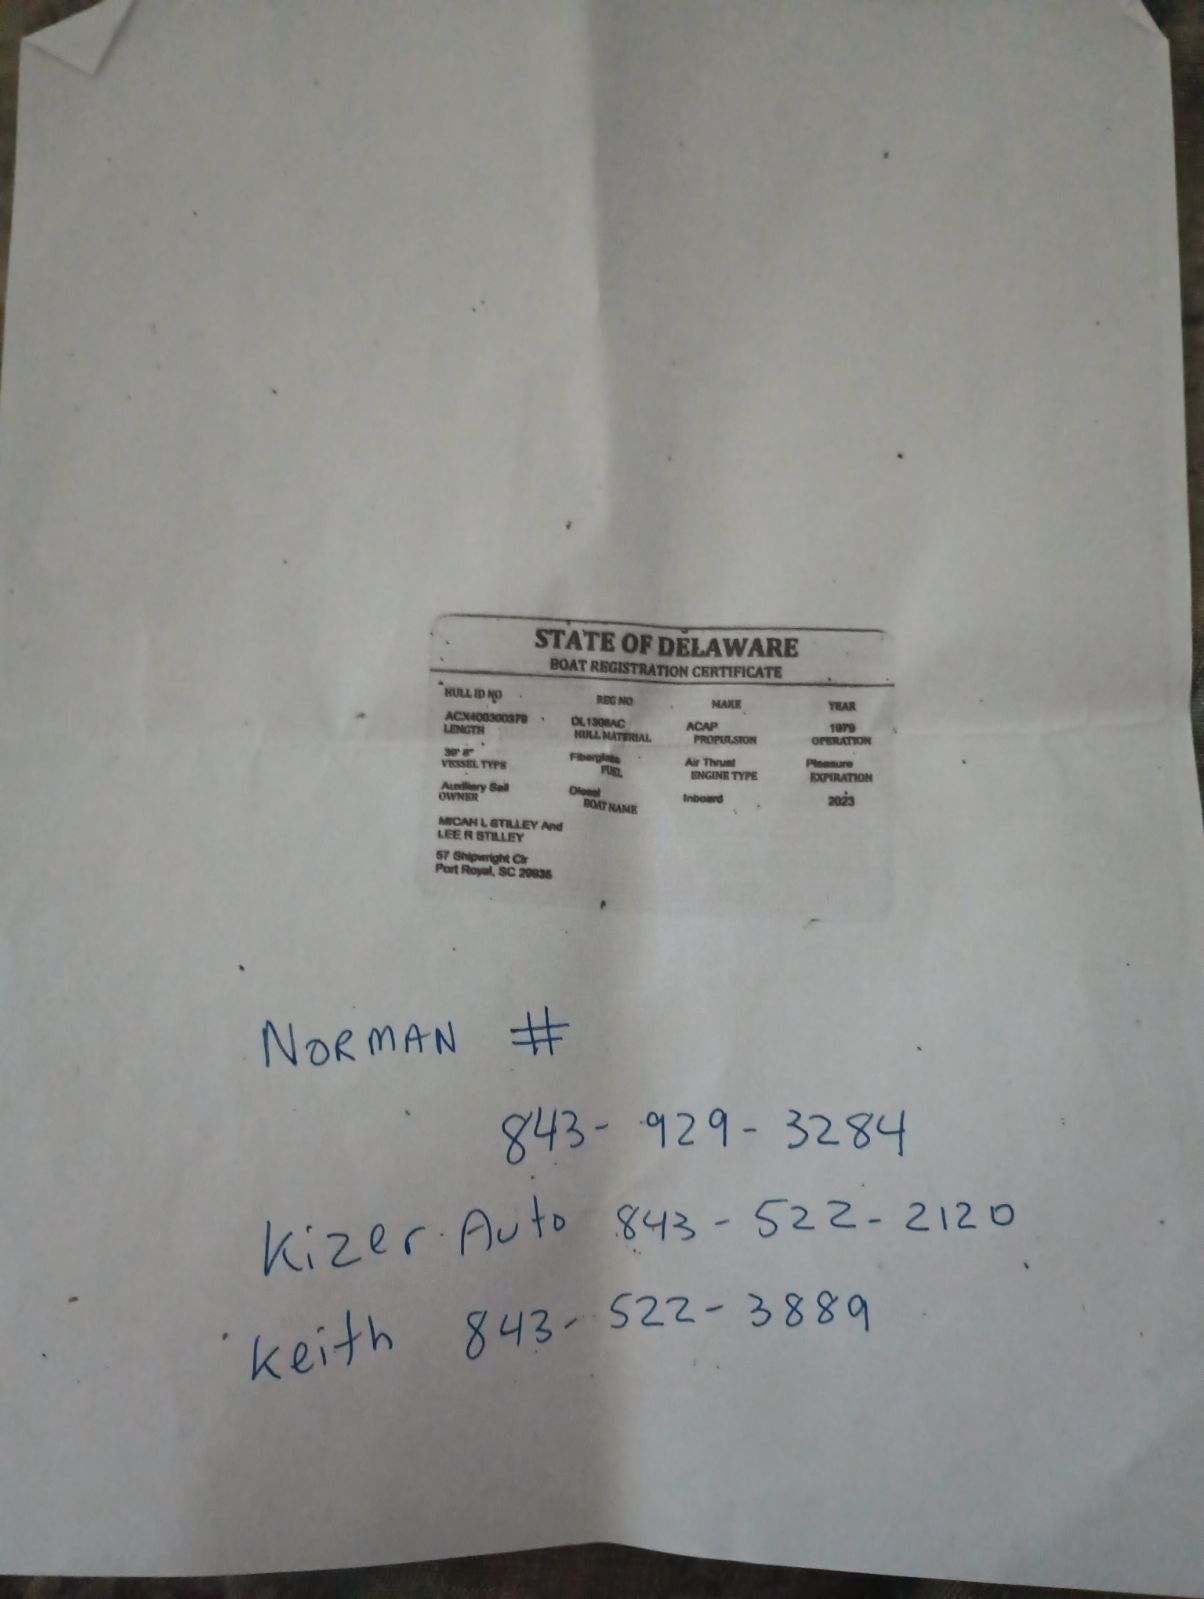 STATE OF DELAWARE
BOAT REGISTRATION CERTIFICATE
HULL ID NO REG NO MAKE YEAR
ACX400300379 DL1308AC ACAP 1979
LENGTH HULL MATERIAL PROPULSION OPERATION
39' 8" Fiberglass Air Thrust Pleasure
VESSEL TYPE FUEL ENGINE TYPE EXPIRATION
Auxiliary Sail Diesel Inboard 2023
OWNER BOAT NAME
MICAH L STILLEY And
LEE R STILLEY
57 Shipwright Cir
Port Royal, SC 29935
NORMAN #
843- 929- 3284
Kizer Auto 843-522-2120
Keith 843-522-3889